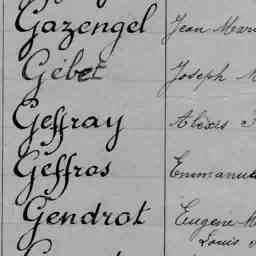 Gazengel Jean Mari
Gébet Joseph M
Geffray Alexis
Geffros Emmanuel
Gendrot Eugène M
Louis